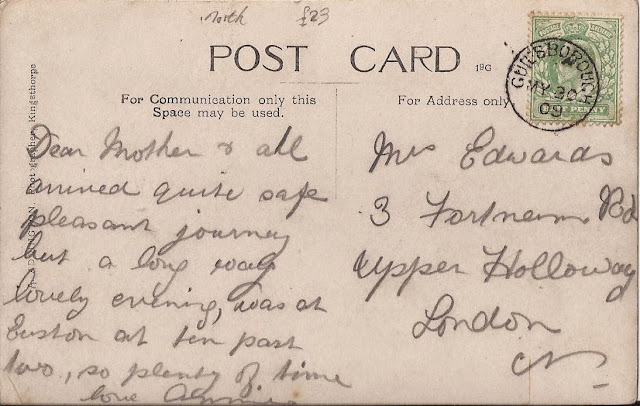 North £23
POST CARD 19G
For Communication only this
Space may be used.
For Address only
GUILSBOROUGH
MY 30
09
Kingsthorpe
Dear Mother & all
arrived quite safe
pleasant journey
but a long way
lovely evening, was at
Euston at ten past
two, so plenty of time
love Annie
Mrs Edwards
3 Fortnam Rd
Upper Holloway
London
N